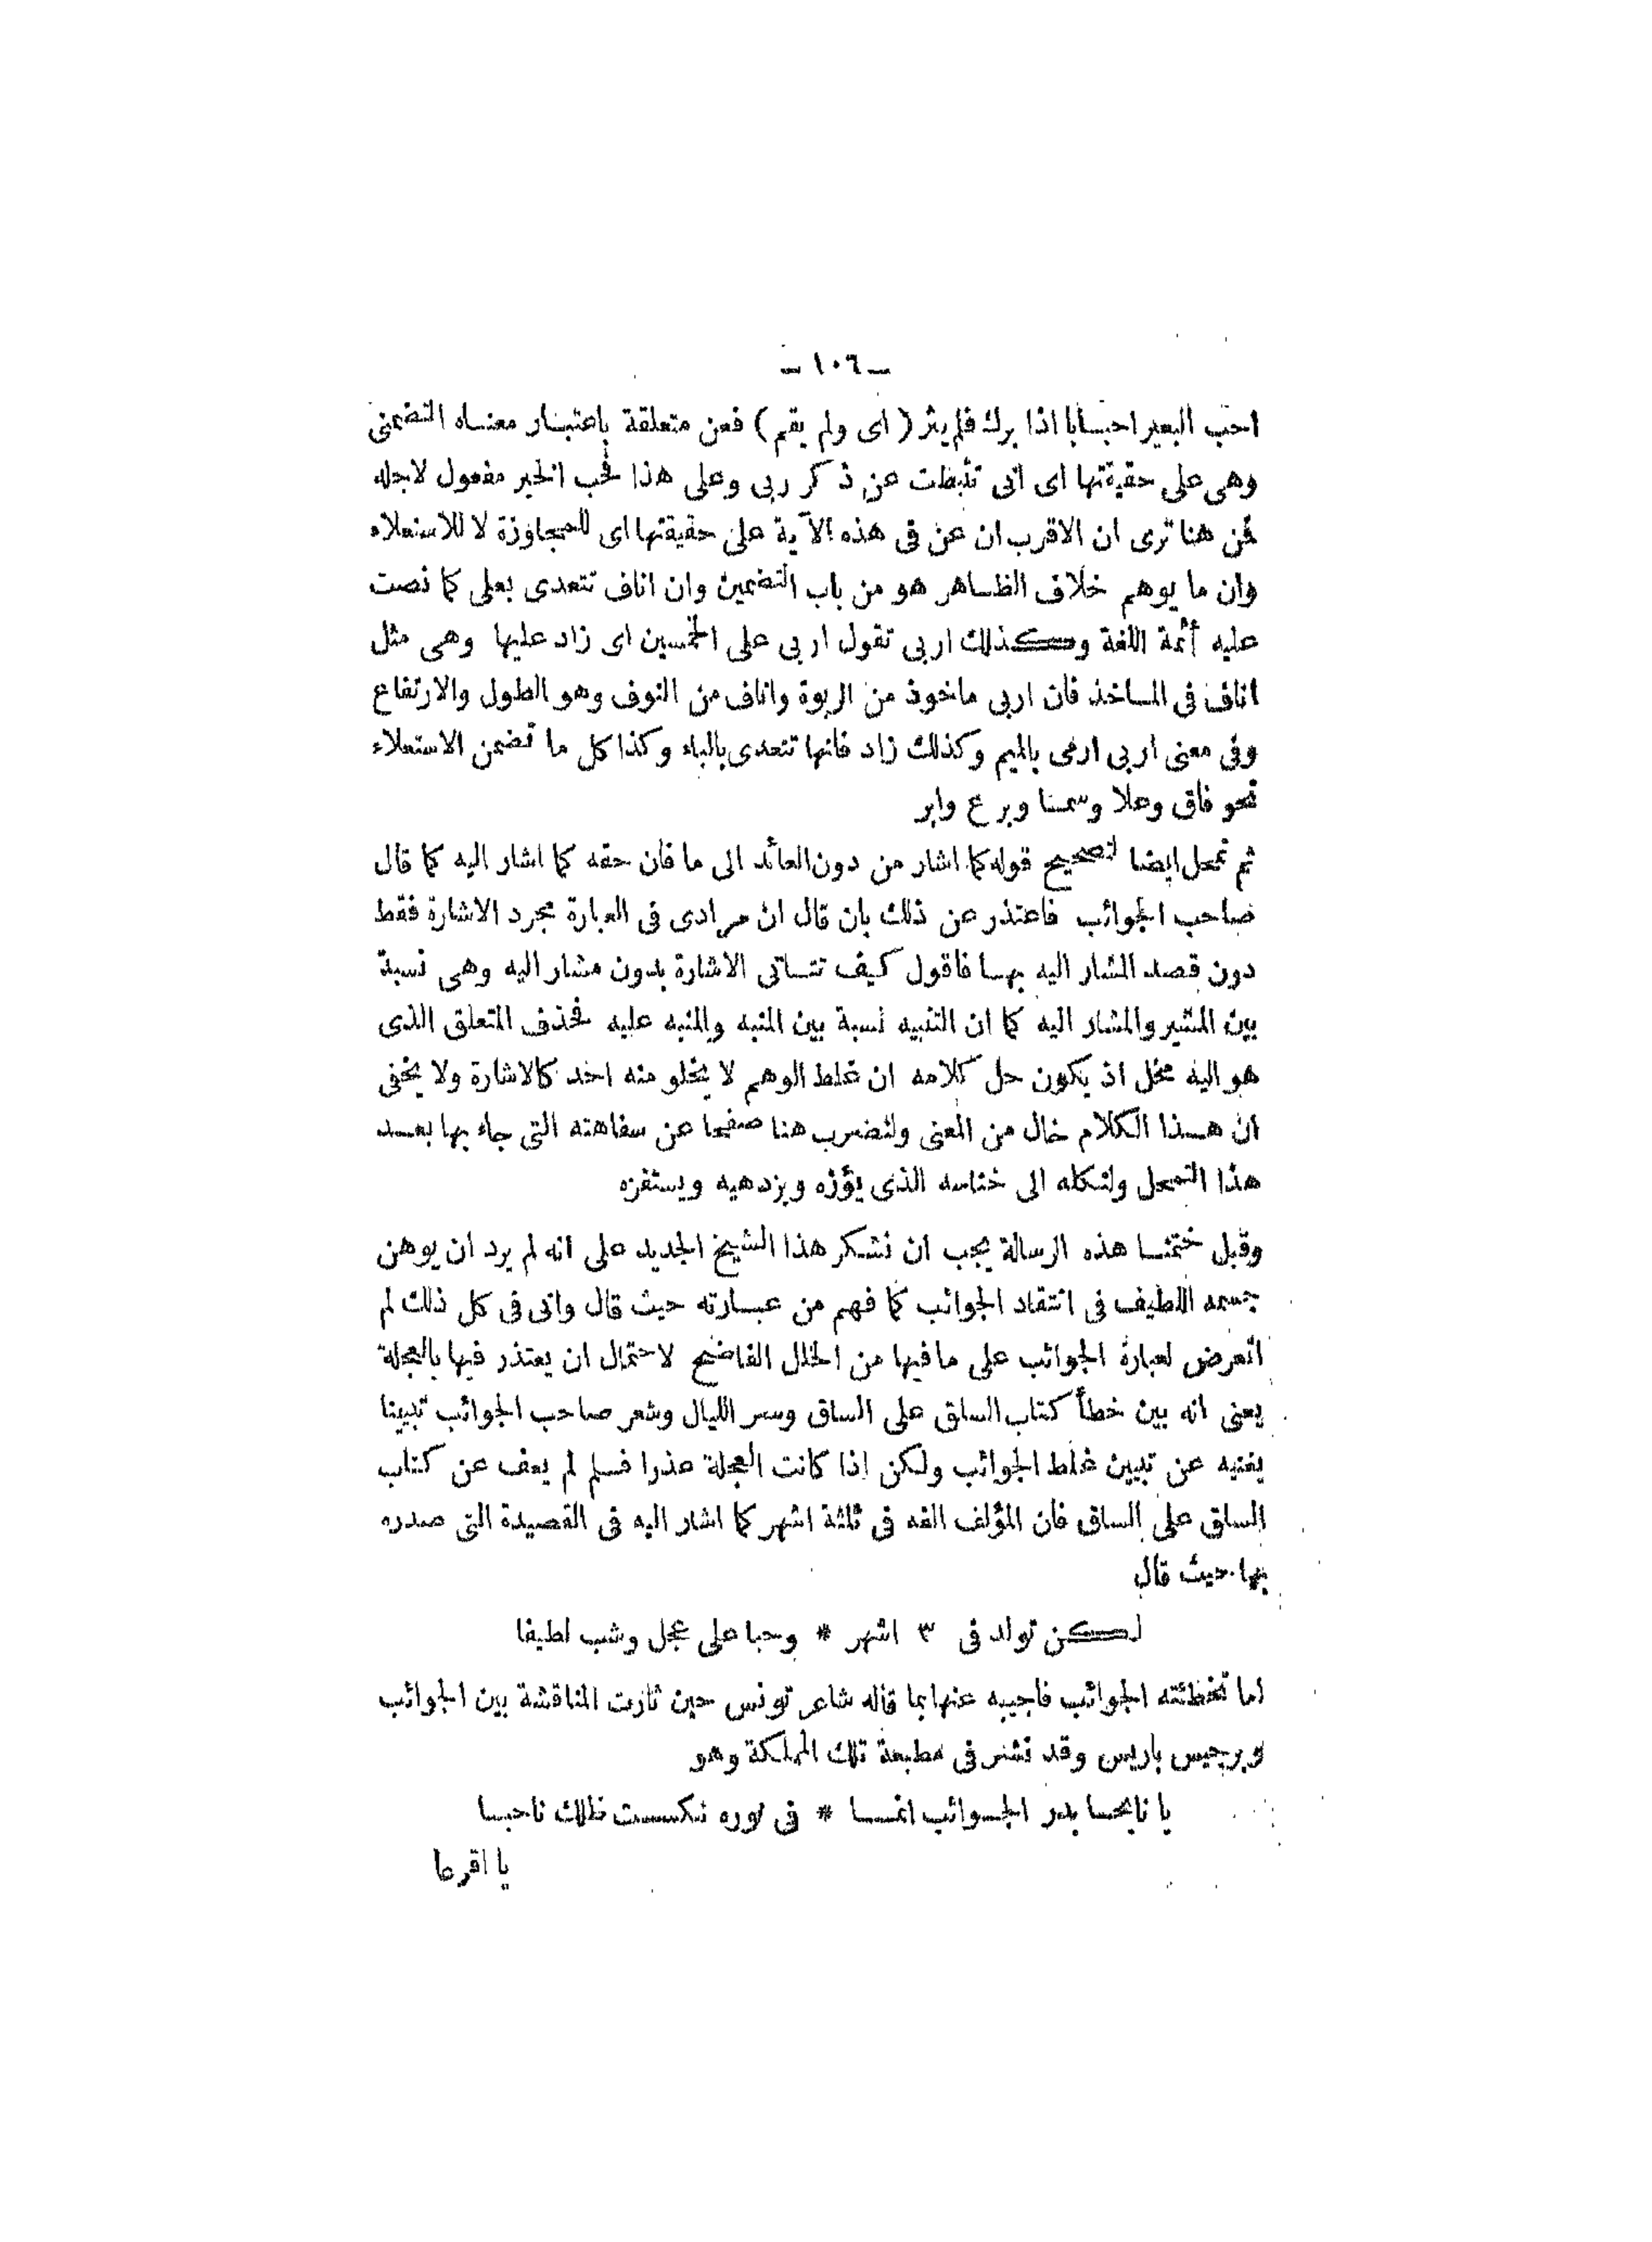 ـ ١٠٦ ـ
احب البعير احبابا اذا برك فلم يثر ( اى ولم يقم ) فعن متعلقة باعتبار معناه التضمنى
وهى على حقيقتها اى انى تثبطت عن ذكر ربى وعلى هذا فحب الخير مفعول لاجله
فمن هنا ترى ان الاقرب ان عن فى هذه الآية على حقيقتها اى للمجاوزة لا للاستعلاء
وان ما يوهم خلاف الظاهر هو من باب التضمين وان اناف تتعدى بعلى كما نصت
عليه أئمة اللغة وكذلك اربى تقول اربى على الخمسين اى زاد عليها وهى مثل
اناف فى الماخذ فان اربى ماخوذ من الربوة واناف من النوف وهو الطول والارتفاع
وفى معنى اربى ارمى بالميم وكذلك زاد فانها تتعدى بالباء وكذا كل ما تضمن الاستعلاء
نحو فاق وعلا وسما وبرع وابر
ثم تمحل ايضا لتصحيح قوله كما اشار من دون العائد الى ما فان حقه كما اشار اليه كما قال
صاحب الجوائب فاعتذر عن ذلك بان قال ان مرادى فى العبارة مجرد الاشارة فقط
دون قصد المشار اليه بها فاقول كيف تتاتى الاشارة بدون مشار اليه وهى نسبة
بين المشير والمشار اليه كما ان التنبيه نسبة بين المنبه والمنبه عليه فحذف المتعلق الذى
هو اليه مخل اذ يكون حل كلامه ان غلط الوهم لا يخلو منه احد كالاشارة ولا يخفى
ان هذا الكلام خال من المعنى ولنضرب هنا صفحا عن سفاهته التى جاء بها بعد
هذا التمحل ولنكله الى خناسه الذى يؤزه ويزدهيه ويستفزه
وقبل ختمنا هذه الرسالة يجب ان نشكر هذا الشيخ الجديد على انه لم يرد ان يوهن
جسمه اللطيف فى انتقاد الجوائب كما فهم من عبارته حيث قال وانى فى كل ذلك لم
اتعرض لعبارة الجوائب على ما فيها من الخلل الفاضح لاحتمال ان يعتذر فيها بالعجلة
يعنى انه بين خطأ كتاب الساق على الساق وسر الليال وشعر صاحب الجوائب تبيينا
يغنيه عن تبيين غلط الجوائب ولكن اذا كانت العجلة عذرا فسلم لم يعف عن كتاب
الساق على الساق فان المؤلف الفه فى ثلثة اشهر كما اشار اليه فى القصيدة التى صدره
بها حيث قال
لكن تولد فى ٣ اشهر * وحبا على عجل وشب لطيفا
اما تخطئته الجوائب فاجيبه عنها بما قاله شاعر تونس حين ثارت المناقشة بين الجوائب
وبرجيس باريس وقد نشر فى مطبعة تلك المملكة وهو
يا نابحا بدر الجوائب انما * فى نوره نكست ظلك ناحبا
يا اقرعا